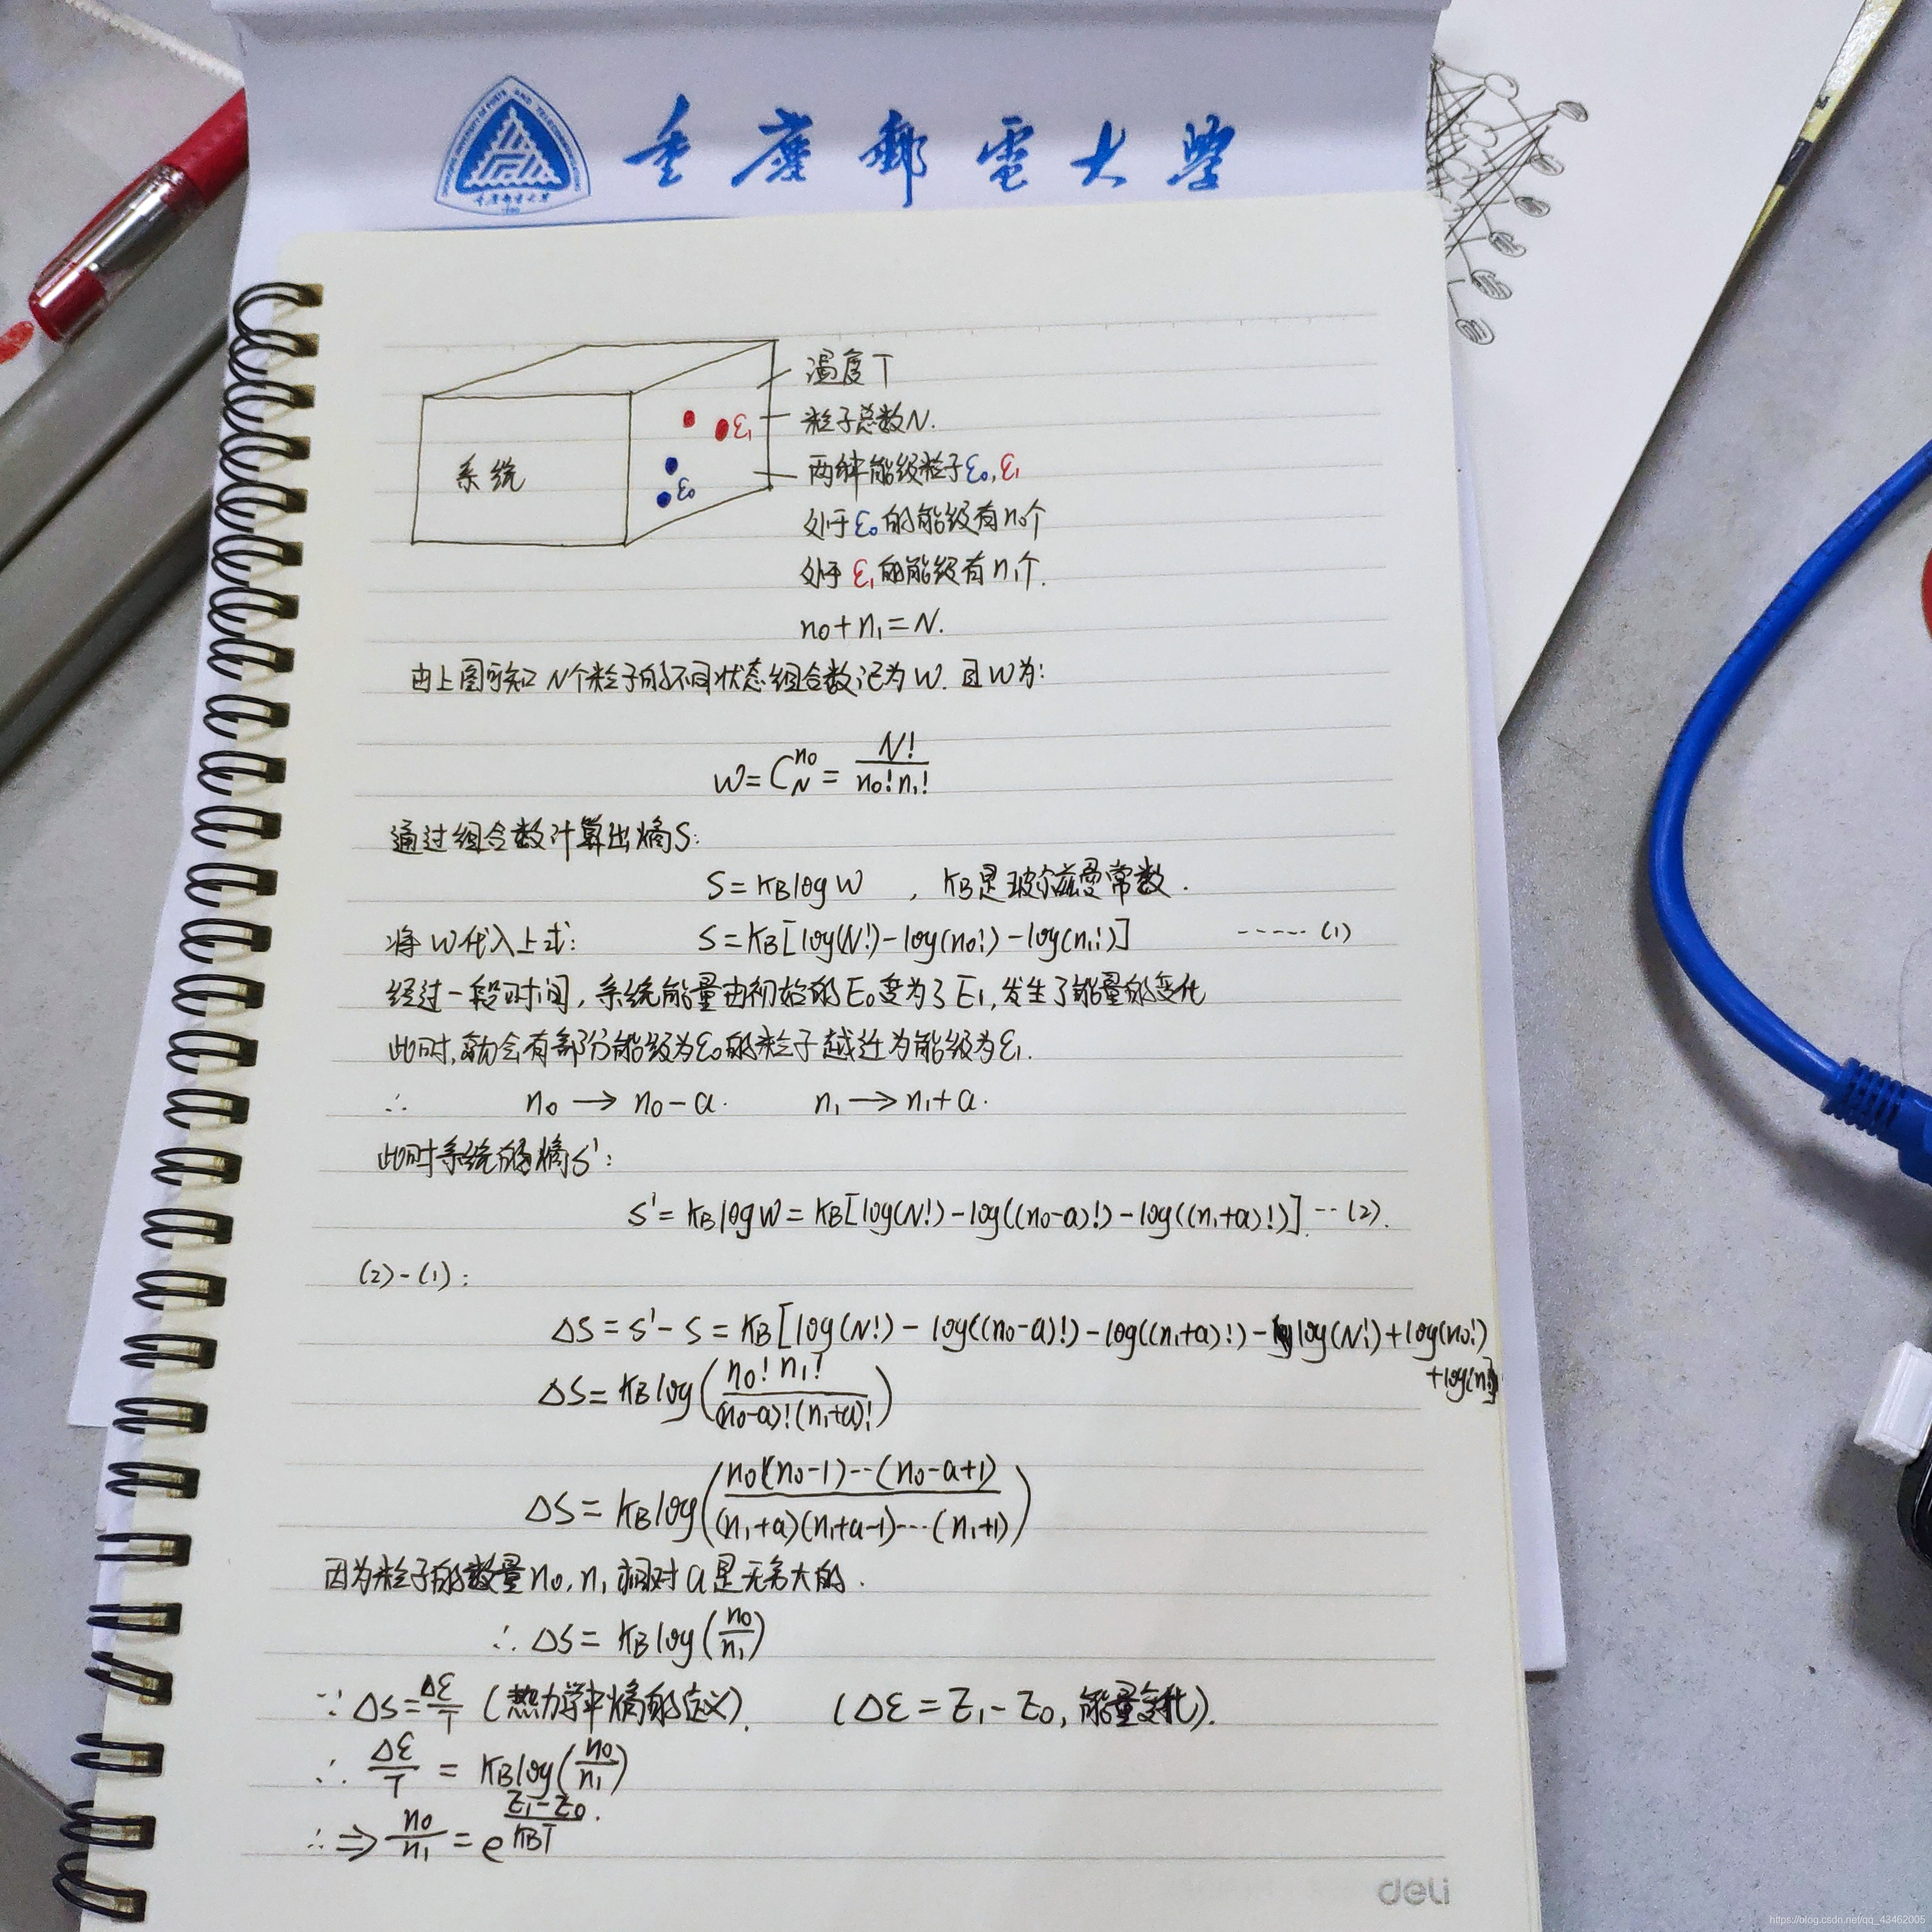 重慶郵電大學
温度T
粒子总数N.
ε₁
系统
两种能级粒子ε₀,ε₁
ε₀
处于ε₀的能级有n₀个
处于ε₁的能级有n₁个.
n₀+n₁=N.
由上图可知 N个粒子的不同状态组合数记为W. 且W为:
W=C_N^{n₀}=N!/(n₀!n₁!)
通过组合数计算出熵S:
S=K_B log W , K_B是玻尔兹曼常数.
将W代入上式: S=K_B[log(N!)-log(n₀!)-log(n₁!)] ……(1)
经过一段时间,系统能量由初始的E₀变为了E₁,发生了能量的变化
此时,就会有部分能级为ε₀的粒子越迁为能级为ε₁.
∴ n₀→n₀-a. n₁→n₁+a.
此时系统的熵S':
S'=K_B log W=K_B[log(N!)-log((n₀-a)!)-log((n₁+a)!)] …(2).
(2)-(1):
ΔS=S'-S=K_B[log(N!)-log((n₀-a)!)-log((n₁+a)!)-log(N!)+log(n₀!)
+log(n₁!)]
ΔS=K_B log(n₀!n₁!/((n₀-a)!(n₁+a)!))
ΔS=K_B log(n₀(n₀-1)…(n₀-a+1)/((n₁+a)(n₁+a-1)…(n₁+1)))
因为粒子的数量n₀,n₁相对a是无穷大的.
∴ΔS=K_B log(n₀/n₁)
∵ΔS=Δε/T (热力学中熵的定义). (Δε=E₁-E₀,能量变化).
∴Δε/T=K_B log(n₀/n₁)
∴⇒n₀/n₁=e^{(E₁-E₀)/(K_B T)}.
deli
https://blog.csdn.net/qq_43462005